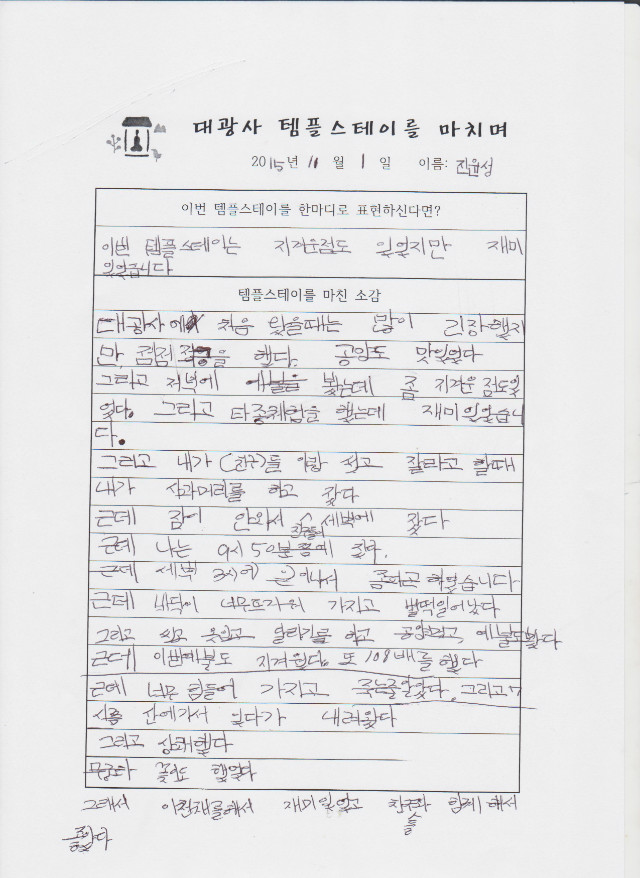 대광사 템플스테이를 마치며
2015년 11월 1일 이름: 진윤성
이번 템플스테이를 한마디로 표현하신다면?
이번 템플스테이는 지겨운점도 있었지만 재미
있었습니다
템플스테이를 마친 소감
대광사에 처음 왔을때는 많이 긴장했지
만, 점점 적응을 했다. 공양도 맛있었다
그리고 저녁에 예불을 봤는데 좀 지겨운 점도있
었다. 그리고 타종체험을 했는데 재미있었습니
다.
그리고 내가 (친구)들 이랑 씻고 잘라고 할때
내가 사과머리를 하고 잤다
근데 잠이 안와서 친구들이 새벽에 잤다
근데 나는 9시 50분쯤에 잤다.
근데 새벽 3시에 일어나서 좀피곤 하였습니다
근데 바닥이 너무뜨거워 가지고 벌떡일어났다
그리고 씻고 옷입고 달리기를 하고 공양하고, 예불도봤다
근데 이번예불도 지겨웠다. 또 108배를 했다
근데 너무 힘들어 가지고 죽는줄알았다. 그리고 7
시쯤 산에가서 있다가 내려왔다
그리고 산책했다
꽃도
그래서 재미있었고 친구들과 함께 해서
좋았다